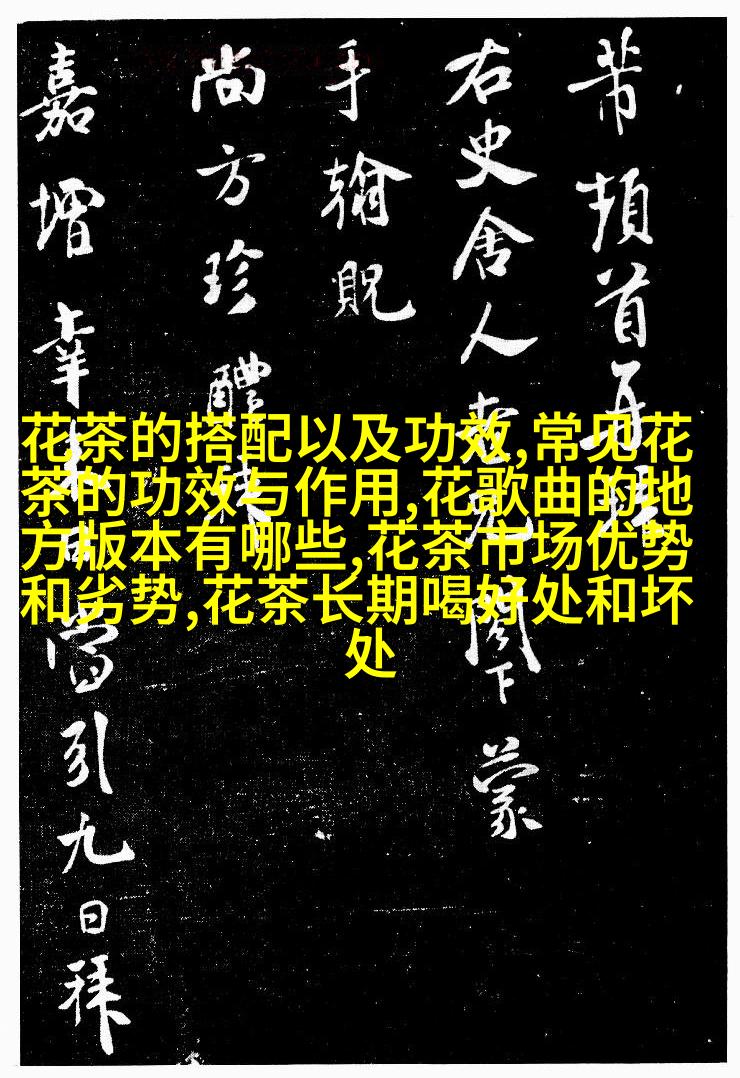 芾頓首再拜
右史舍人
閣下蒙
手翰貺
尚方珍醴
嘉增幸
引九日拜
花茶的搭配以及功效,常见花
茶的功效与作用,花歌曲的地
方版本有哪些,花茶市场优势
和劣势,花茶长期喝好处和坏
处